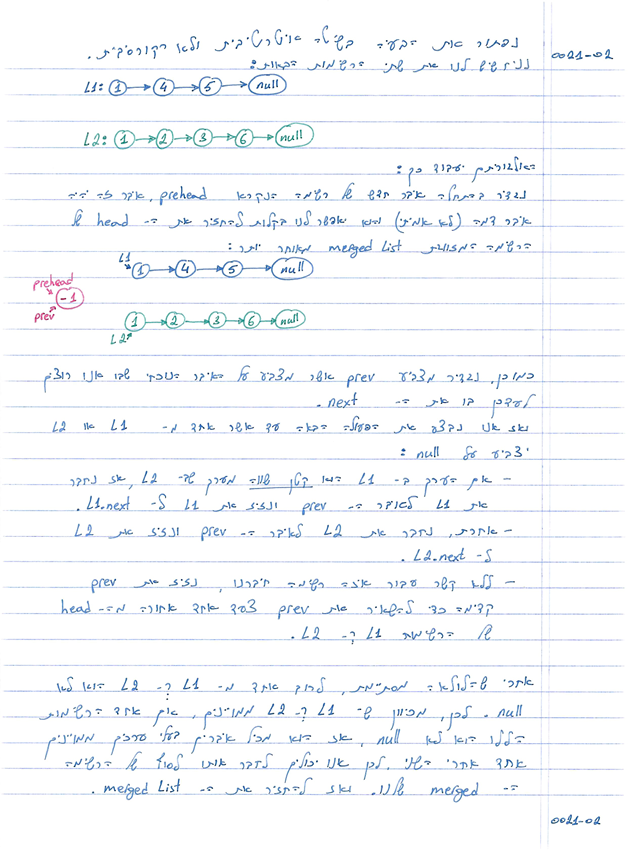 0021-02
נפתור את הבעיה בשיטה איטרטיבית ולא רקורסיבית.
נניח שיש לנו את שתי הרשימות הבאות:
L1: 1 → 4 → 5 → null
L2: 1 → 2 → 3 → 6 → null
האלגוריתם יעבוד כך:
נגדיר בהתחלה איבר חדש של רשימה הנקרא prehead, איבר זה יהיה
איבר דמה (לא אמיתי) והוא יאפשר לנו בקלות להחזיר את ה- head של
הרשימה הממוזגת merged List מאוחר יותר:
L1
1 → 4 → 5 → null
prehead
-1
prev
1 → 2 → 3 → 6 → null
L2
כמו כן, נגדיר מצביע prev אשר מצביע על האיבר הנוכחי שבו אנו רוצים
לעדכן בו את ה- next.
ואז אנו נבצע את הפעולה הבאה עד אשר אחד מ- L1 או L2
יצביע על null:
- אם הערך ב- L1 הוא קטן שווה מערך שב- L2, אז נחבר
את L1 לאיבר ה- prev ונזיז את L1 ל- L1.next.
- אחרת, נחבר את L2 לאיבר ה- prev ונזיז את L2
ל- L2.next.
- ללא קשר עבור איזה רשימה חיברנו, נזיז את prev
קדימה כדי להשאיר את prev צעד אחד אחורה מה- head
של הרשימות L1 ו- L2.
אחרי שהלולאה מסתיימת, לרוב אחד מ- L1 ו- L2 הוא לא
null. לכן, מכיוון ש- L1 ו- L2 ממויינים, אם אחד הרשימות
הללו הוא לא null, אז הוא מכיל איברים בעלי ערכים ממויינים
אחד אחרי השני. לכן אנו יכולים לחבר אותו לסוף של הרשימה
ה- merged שלנו. ואז להחזיר את ה- merged List.
0021-02